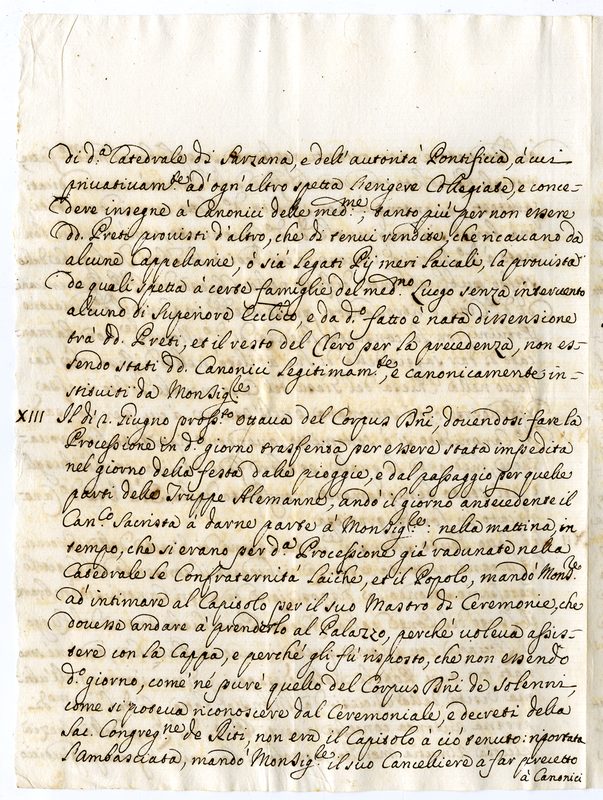 di d.ª Catedrale di Sarzana, e dell'autorità Pontificia, à cui
privativam.te ad ogn'altro spetta l'erigere Collegiate, e conce-
dere insegne à Canonici delle med.me, tanto più per non essere
dd. Preti provisti d'altro, che di tenui rendite, che ricavano da
alcune Cappellanie, ó sia Legati Pij meri laicali, la provista
de quali spetta à certe famiglie del med.mo Luogo senza intervento
alcuno di Superiore Eccl.ico, e da d.º fatto è nata dissensione
trà dd. Preti, et il resto del Clero per la precedenza, non es-
sendo stati dd. Canonici legitimam.te, e canonicamente in-
stituiti da Monsig.re
XIII Il di 2. Giugno pross.to ottava del Corpus Dñi, dovendosi fare la
Processione in d.º giorno trasferita per essere stata impedita
nel giorno della festa dalle pioggie, e dal passaggio per quelle
parti delle Truppe Alemanne, andò il giorno antecedente il
Can.co Sacrista à darne parte à Monsig.re: nella mattina, in
tempo, che si erano per d.ª Processione già radunate nella
Catedrale le Confraternità Laiche, et il Popolo, mandò Mons.re
ad intimare al Capitolo per il suo Mastro di Ceremonie, che
dovesse andare à prenderlo al Palazzo, perché voleva assis-
tere con la Cappa, e perché gli fù risposto, che non essendo
d.º giorno, come né pure quello del Corpus Dñi de solenni,
come si poteva riconoscere dal Ceremoniale, e decreti della
Sac. Congreg.ne de Riti, non era il Capitolo à ciò tenuto: riportata
l'ambasciata, mandò Monsig.re il suo Cancelliere à far precetto
à Canonici